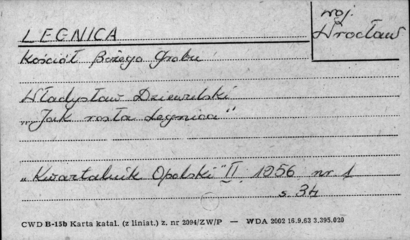 LEGNICA
woj.
Wrocław
Kościół Bożego Grobu
Władysław Dziewulski
"Jak rosła Legnica"
"Kwartalnik Opolski" II 1956 nr 1
s. 34
CWD B-15b Karta katal. (z liniat.) z. nr 2094/ZW/P — WDA 2002 16.9.63 3.295.020